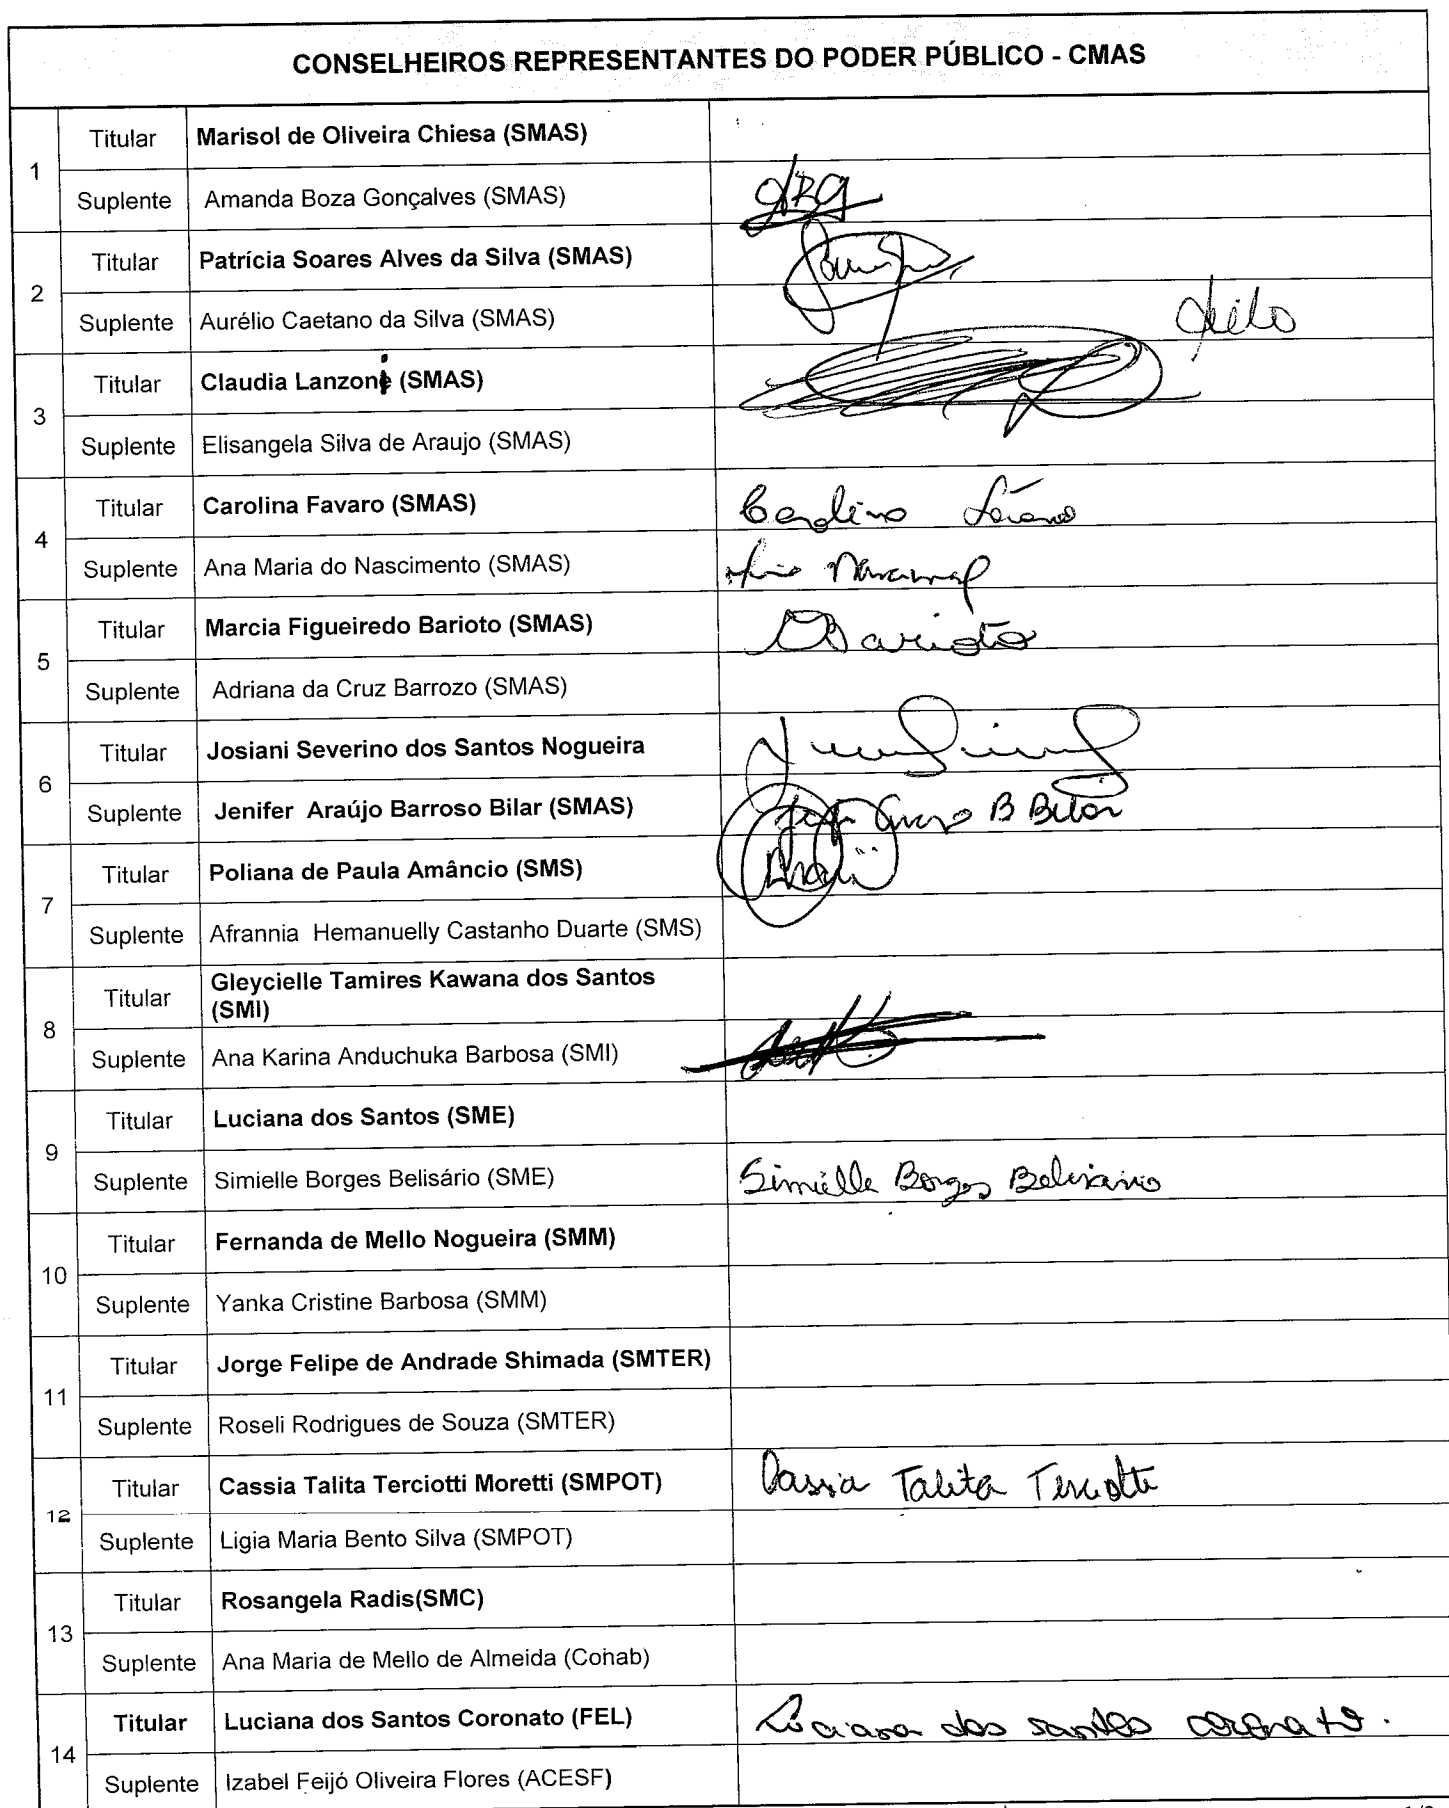 CONSELHEIROS REPRESENTANTES DO PODER PÚBLICO - CMAS
1
Titular Marisol de Oliveira Chiesa (SMAS)
Suplente Amanda Boza Gonçalves (SMAS) ABG
2
Titular Patrícia Soares Alves da Silva (SMAS)
Suplente Aurélio Caetano da Silva (SMAS)
3
Titular Claudia Lanzoni (SMAS)
Suplente Elisangela Silva de Araujo (SMAS)
4
Titular Carolina Favaro (SMAS) Carolina Favaro
Suplente Ana Maria do Nascimento (SMAS)
5
Titular Marcia Figueiredo Barioto (SMAS) Barioto
Suplente Adriana da Cruz Barrozo (SMAS)
6
Titular Josiani Severino dos Santos Nogueira
Suplente Jenifer Araújo Barroso Bilar (SMAS) B Bilar
7
Titular Poliana de Paula Amâncio (SMS)
Suplente Afrannia Hemanuelly Castanho Duarte (SMS)
8
Titular Gleycielle Tamires Kawana dos Santos
(SMI)
Suplente Ana Karina Anduchuka Barbosa (SMI)
9
Titular Luciana dos Santos (SME)
Suplente Simielle Borges Belisário (SME) Simielle Borges Belisario
10
Titular Fernanda de Mello Nogueira (SMM)
Suplente Yanka Cristine Barbosa (SMM)
11
Titular Jorge Felipe de Andrade Shimada (SMTER)
Suplente Roseli Rodrigues de Souza (SMTER)
12
Titular Cassia Talita Terciotti Moretti (SMPOT) Cassia Talita Terciotti
Suplente Ligia Maria Bento Silva (SMPOT)
13
Titular Rosangela Radis(SMC)
Suplente Ana Maria de Mello de Almeida (Cohab)
14
Titular Luciana dos Santos Coronato (FEL) Luciana dos santos coronato.
Suplente Izabel Feijó Oliveira Flores (ACESF)